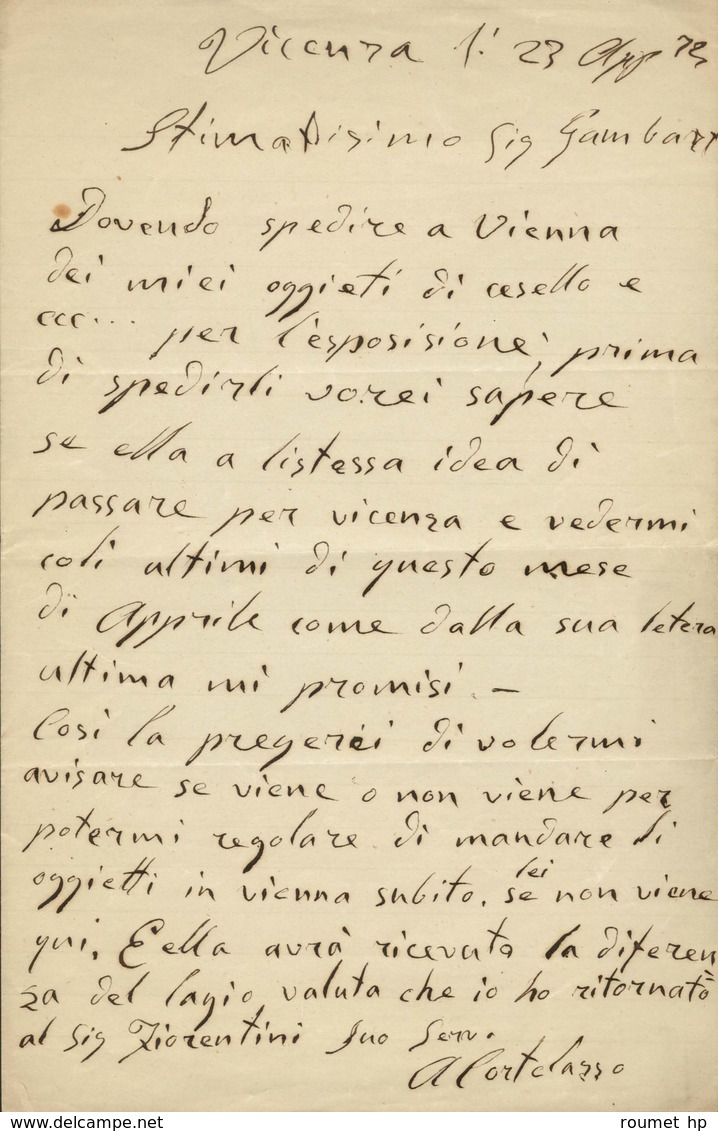 Vicenza li 23 App 73
Stimatisimo Sig Gambart
Dovendo spedire a Vienna
dei miei oggieti di cesello e
ecc... per l'esposisione, prima
di spedirli vorei sapere
se ella a listessa idea di
passare per vicenza e vedermi
coli ultimi di questo mese
di Apprile come dalla sua letera
ultima mi promisi. —
Cosi la pregerei di volermi
avisare se viene o non viene per
potermi regolare di mandare li
oggietti in vienna subito. se lei non viene
qui. E ella avrà ricevuto la diferen
za del lagio valuta che io ho ritornato
al Sig Fiorentini Suo Serv.
A Cortelazzo
roumet hp